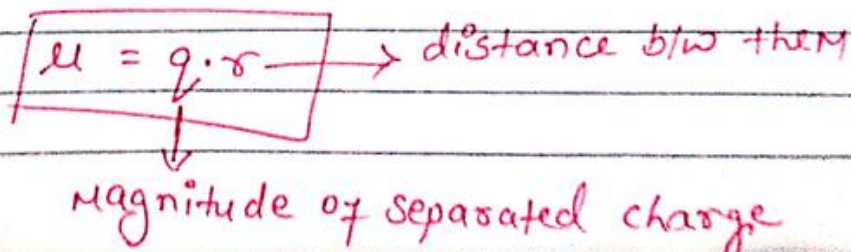 μ = q·r → distance b/w them
↓
Magnitude of separated charge